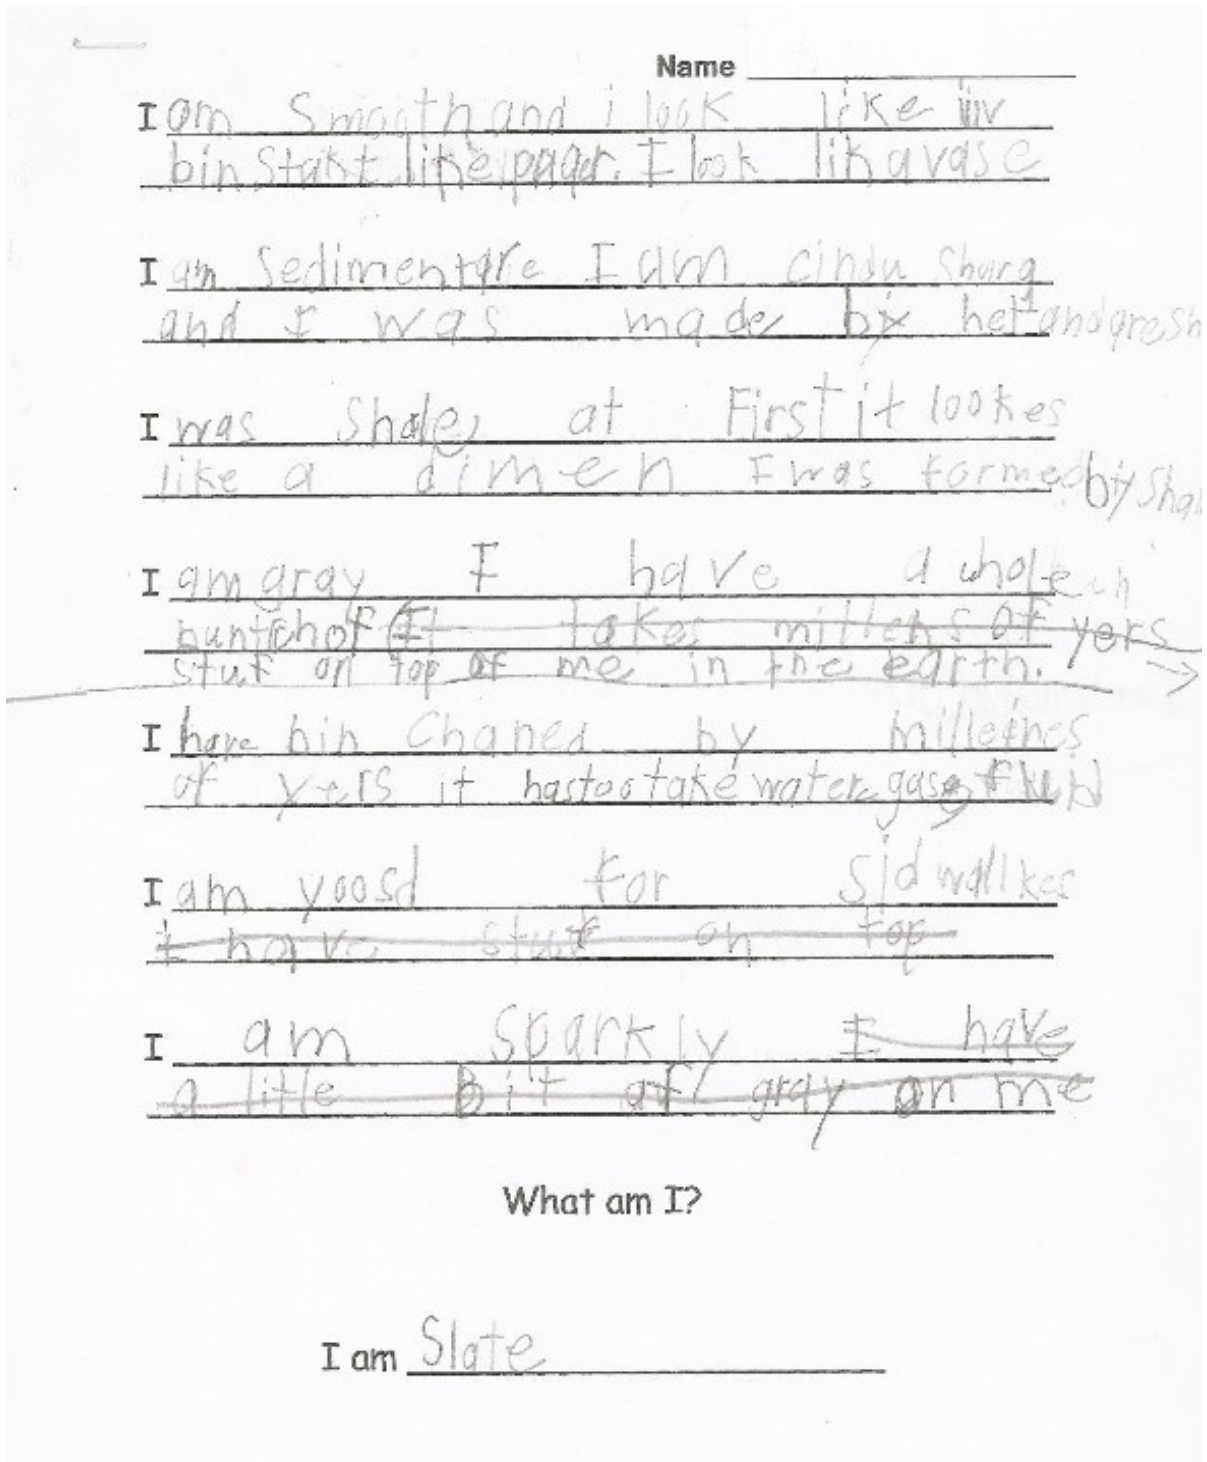 Name
I am Smooth and i look like iiv
bin Stakt like paper. I look lik a vase
I am Sedimentare I am cindu Sharq
and I was made by het and presh
I was Shale, at First it lookes
like a dimen I was formed by Sha
I am gray I have a whole
bunch of It takes millens of yers
stuf on top of me in the earth.
I have bin Chaned by milleines
of yers it has too take water, gas, fluid
I am yoosd for Sidwallkes
I have stuf on top
I am Sparkly I have
a litle Bit of gray on me
What am I?
I am Slate